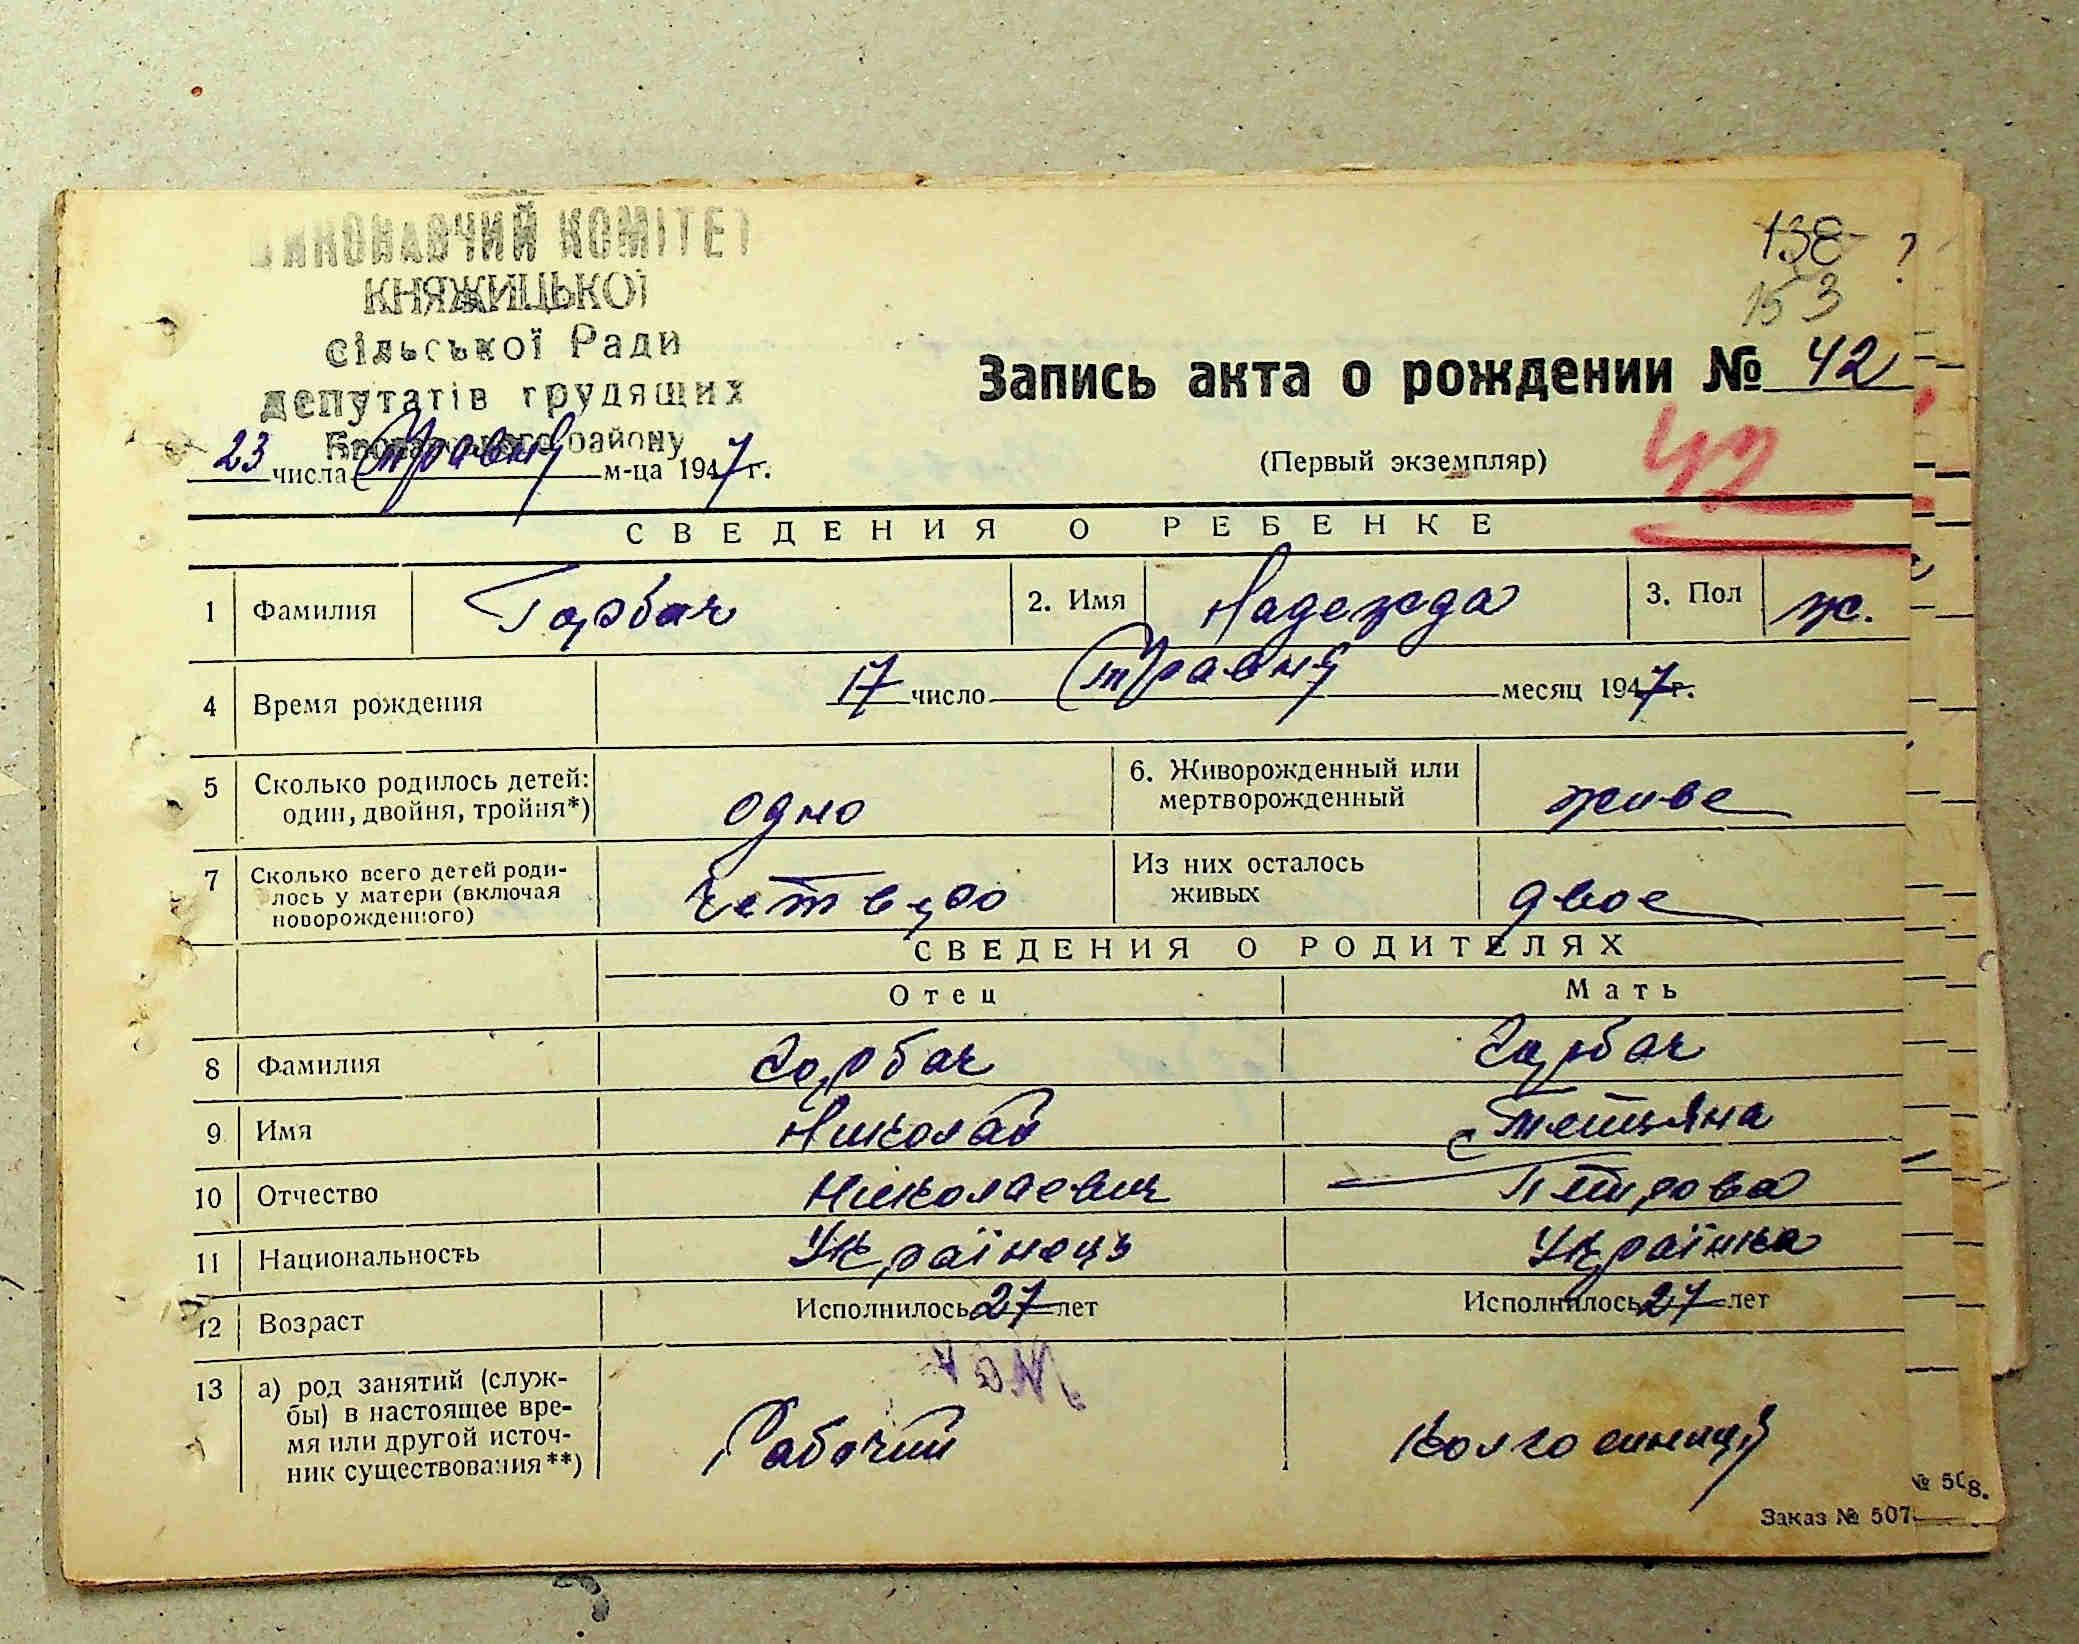 ВИКОНАВЧИЙ КОМІТЕТ
КНЯЖИЦЬКОЇ
сільської Ради
депутатів трудящих
Броварського району
138 ?
153
Запись акта о рождении № 42
23 числа травня м-ца 1947 г.
(Первый экземпляр)
42
СВЕДЕНИЯ О РЕБЕНКЕ
1 Фамилия Горбач 2. Имя Надежда 3. Пол ж.
4 Время рождения 17 число травня месяц 1947 г.
5 Сколько родилось детей: один, двойня, тройня*) одно 6. Живорожденный или мертворожденный живе
7 Сколько всего детей родилось у матери (включая новорожденного) четверо Из них осталось живых двое
СВЕДЕНИЯ О РОДИТЕЛЯХ
Отец Мать
8 Фамилия Горбач Горбач
9 Имя Николай Тетяна
10 Отчество Николаевич Петрова
11 Национальность Українець Українка
12 Возраст Исполнилось 27 лет Исполнилось 27 лет
13 а) род занятий (служ-
бы) в настоящее вре-
мя или другой источ-
ник существования**) Рабочий
№ 508.
Заказ № 507